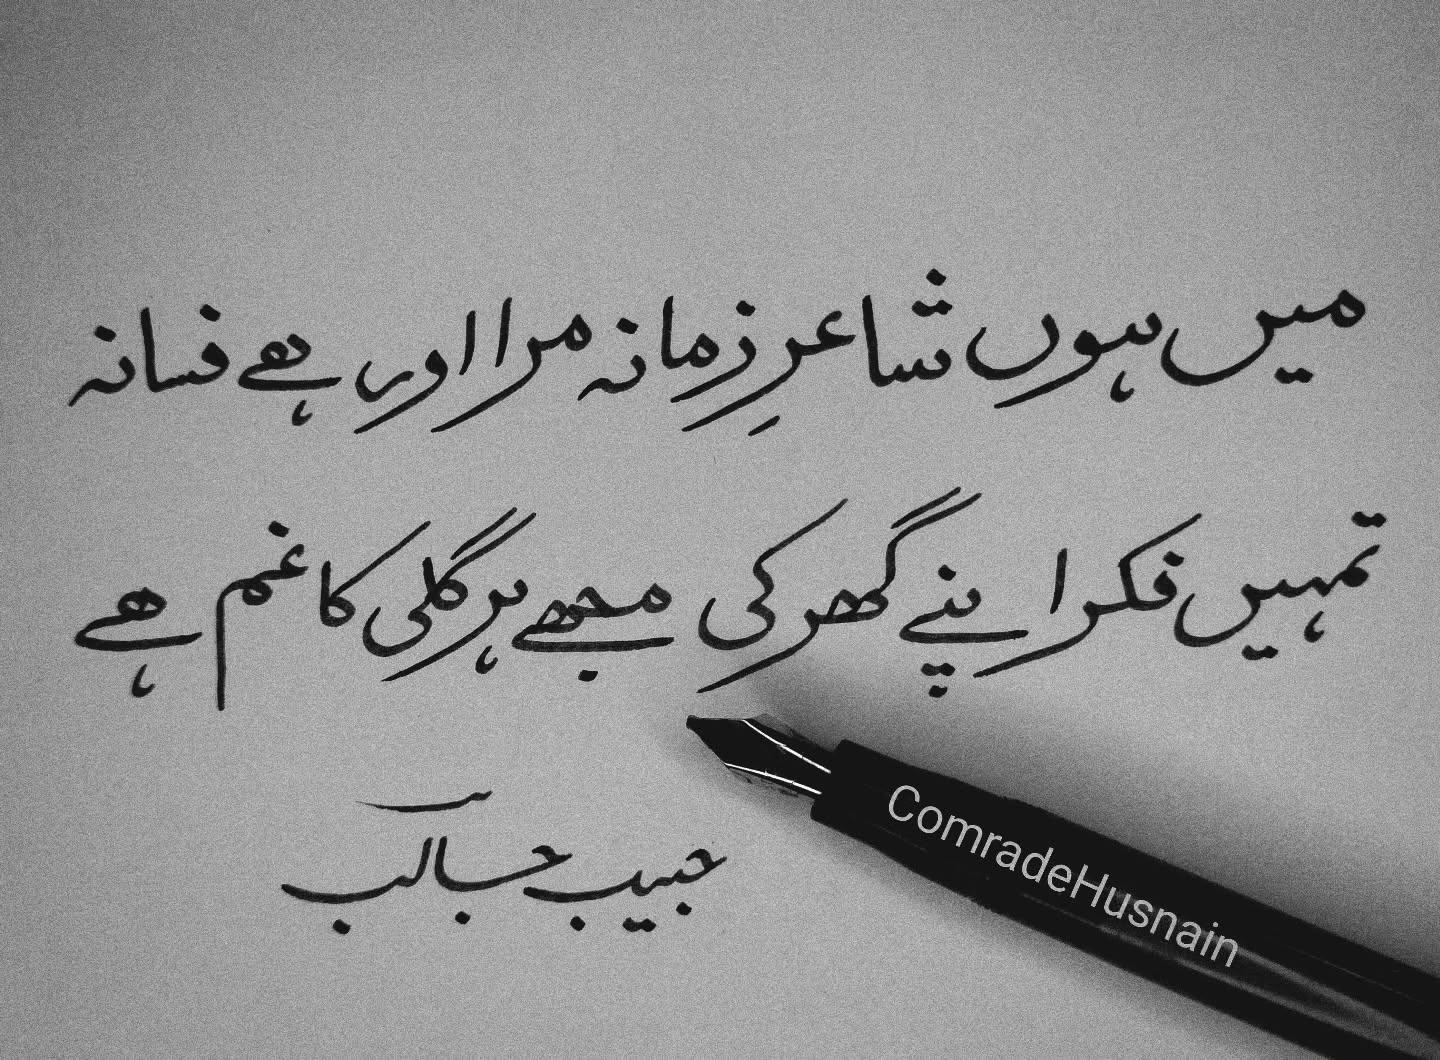 میں ہوں شاعرِ زمانہ مرا اور ہے فسانہ
تمہیں فکر اپنے گھر کی مجھے ہر گلی کا غم ہے
حبیب جالب
ComradeHusnain